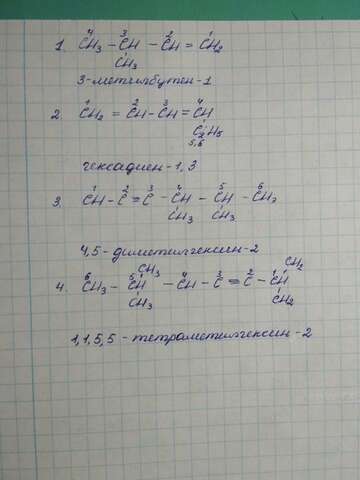 1. ⁴CH₃ – ³CH – ²CH = ¹CH₂
CH₃
3-метилбутен-1
2. ¹CH₂ = ²CH – ³CH = ⁴CH
C₂H₅
5,6
гексадиен-1,3
3. ¹CH – ²C ≡ ³C – ⁴CH – ⁵CH – ⁶CH₃
CH₃ CH₃
4,5-диметилгексин-2
CH₃ CH₂
4. ⁶CH₃ – ⁵CH – ⁴CH – ³C ≡ ²C – ¹CH
CH₃ CH₂
1,1,5,5-тетрометилгексин-2